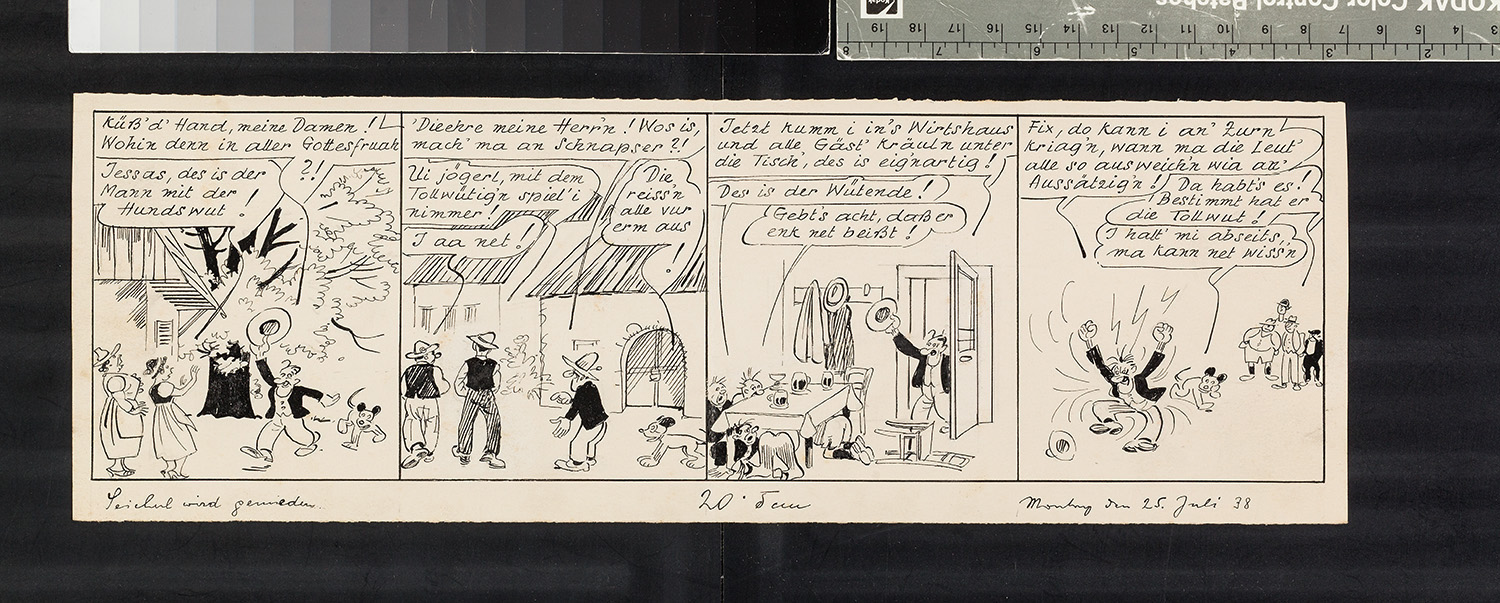 KODAK Color Control Patches
Küß'd' Hand, meine Damen!
Wohin denn in aller Gottesfruah
?!
Jessas, des is der
Mann mit der
Hundswut!
'Dieehre meine Herr'n! Wos is,
mach' ma an Schnapser?!
Ui jögerl, mit dem
Tollwütig'n spiel' i
nimmer!
I aa net!
Die
reiss'n
alle vur
erm aus
!
Jetzt kumm i in's Wirtshaus
und alle Gäst' kräuln unter
die Tisch', des is eig'nartig!
Des is der Wütende!
Gebt's acht, daß er
enk net beißt!
Fix, do kann i an' Zurn
kriag'n, wann ma die Leut'
alle so ausweich'n wia an'
Aussätzig'n!
Da habt's es!
Bestimmt hat er
die Tollwut!
I halt' mi abseits,
ma kann net wiss'n
Seicherl wird gemieden..
20
Montag den 25. Juli 38